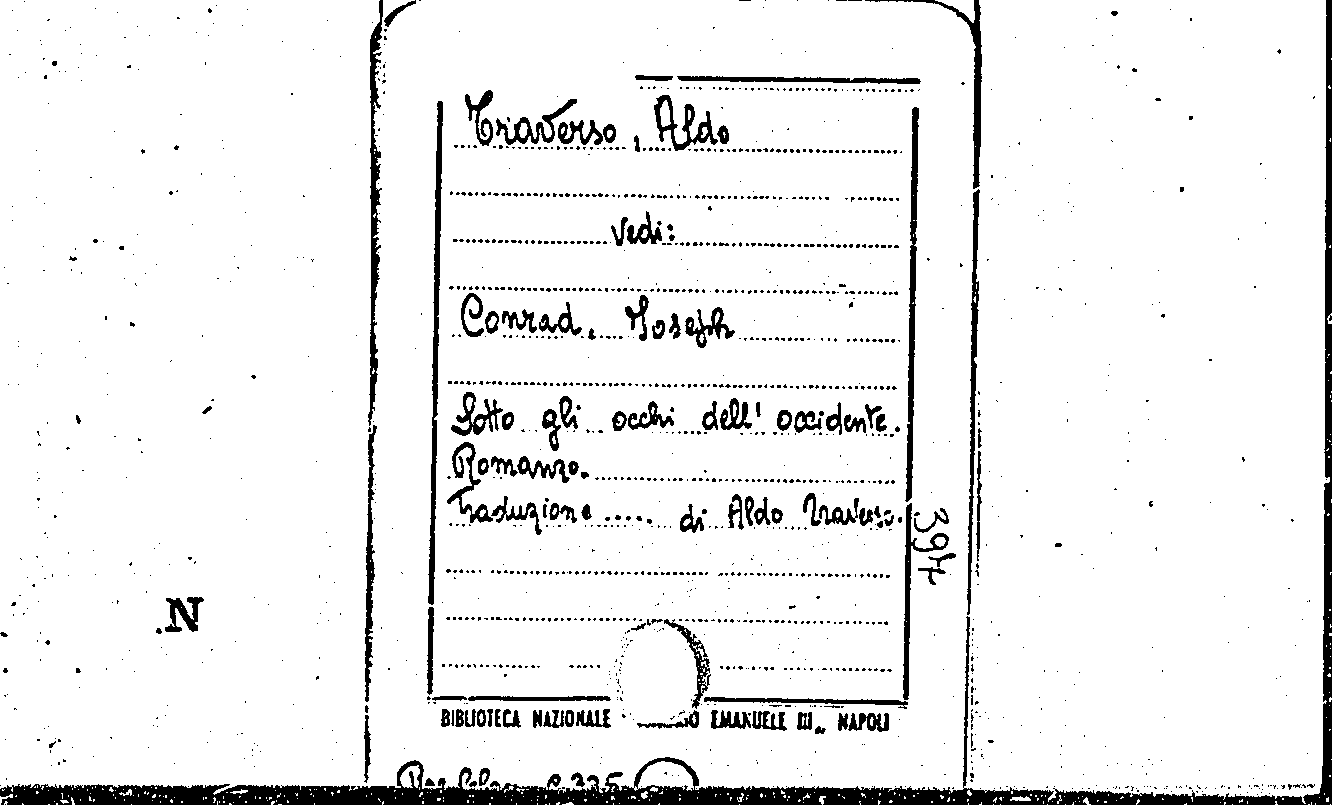 Traverso, Aldo
Vedi:
Conrad, Joseph
Sotto gli occhi dell' occidente.
Romanzo.
Traduzione ..... di Aldo Traverso.
394
N
BIBLIOTECA NAZIONALE EMANUELE III„ NAPOLI